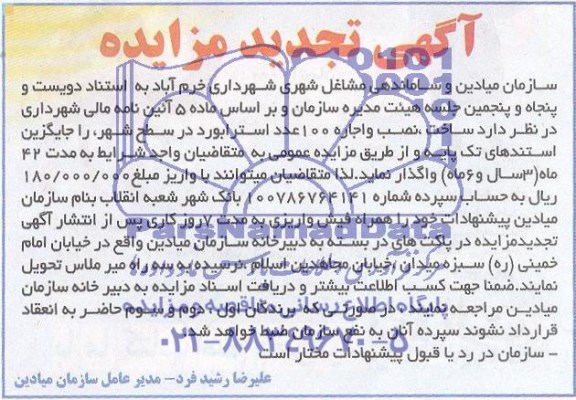 آگهی تجدید مزایده
سازمان میادین و ساماندهی مشاغل شهری شهرداری خرم آباد به استناد دویست و
پنجاه و پنجمین جلسه هیئت مدیره سازمان و بر اساس ماده ۵ آئین نامه مالی شهرداری
در نظر دارد ساخت ،نصب واجاره ۱۰۰عدد استرابورد در سطح شهر، را جایگزین
استندهای تک پایه و از طریق مزایده عمومی به متقاضیان واجد شرایط به مدت ۴۲
ماه(۳سال و۶ماه) واگذار نماید.لذا متقاضیان میتوانند با واریز مبلغ۱۸۰/۰۰۰/۰۰۰
ریال به حساب سپرده شماره ۱۰۰۷۸۶۷۶۴۱۴۱ بانک شهر شعبه انقلاب بنام سازمان
میادین پیشنهادات خود را همراه فیش واریزی به مدت ۷روز کاری پس از انتشار آگهی
تجدیدمزایده در پاکت های در بسته به دبیرخانه سازمان میادین واقع در خیابان امام
خمینی (ره) سبزه میدان ،خیابان مجاهدین اسلام ،نرسیده به سه راه میر ملاس تحویل
نمایند.ضمنا جهت کسب اطلاعت بیشتر و دریافت اسناد مزایده به دبیر خانه سازمان
میادین مراجعه نمایند. در صورتی که برندگان اول، دوم و سوم حاضر به انعقاد
قرارداد نشوند سپرده آنان به نفع سازمان ضبط خواهد شد.
- سازمان در رد یا قبول پیشنهادات مختار است
علیرضا رشید فرد- مدیر عامل سازمان میادین
ParsNamadData
پایگاه اطلاع رسانی مناقصه و مزایده
۰۲۱-۸۸۳۴۹۶۷۰-۵